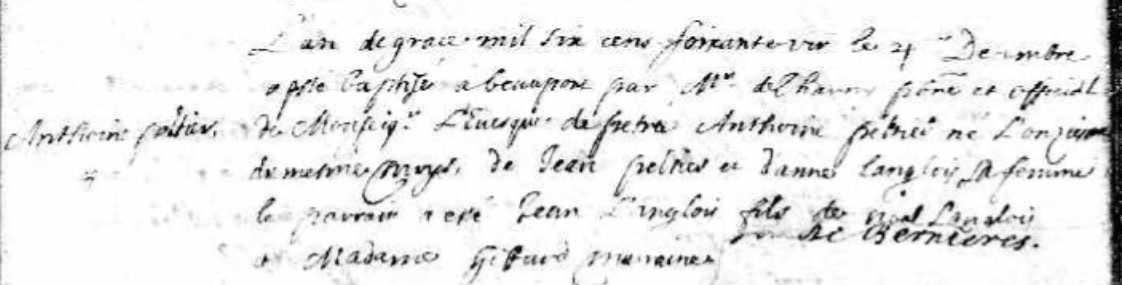 L'an de grace mil six cens soixante un le 21 Decembre
a esté baptisé a beauport par Mr de Charny pbre et official
Anthoine peltier. de Monseigr L'Evesque de petrée Anthoine peltier né L'onziesme
du mesme moys, de Jean peltier et d'anne Langlois sa femme
le parrain a esté Jean Langlois fils de noel Langlois
et Madame Giffard marraine
De Bernieres.